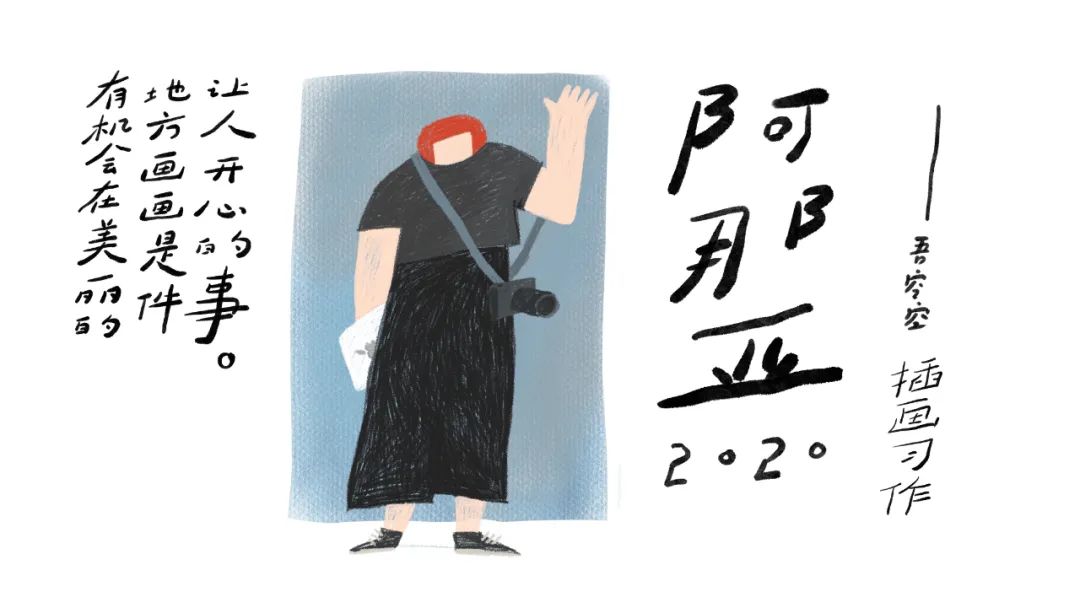 有机会在美丽的
地方画画是件
让人开心的事。
阿那亚
2020
——吾空空 插画习作